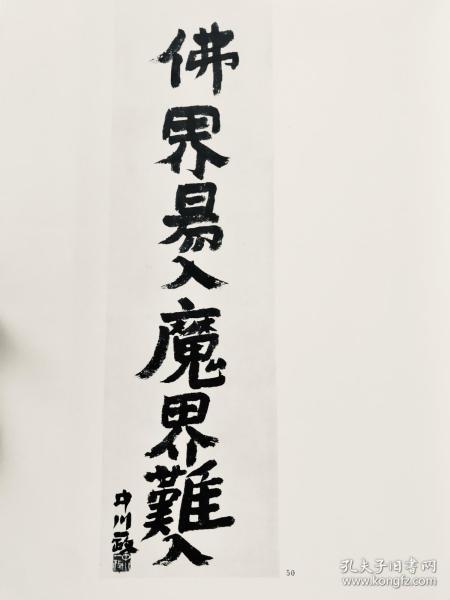 佛界易入魔界難入
中川一政
50
孔夫子旧书网
www.kongfz.com